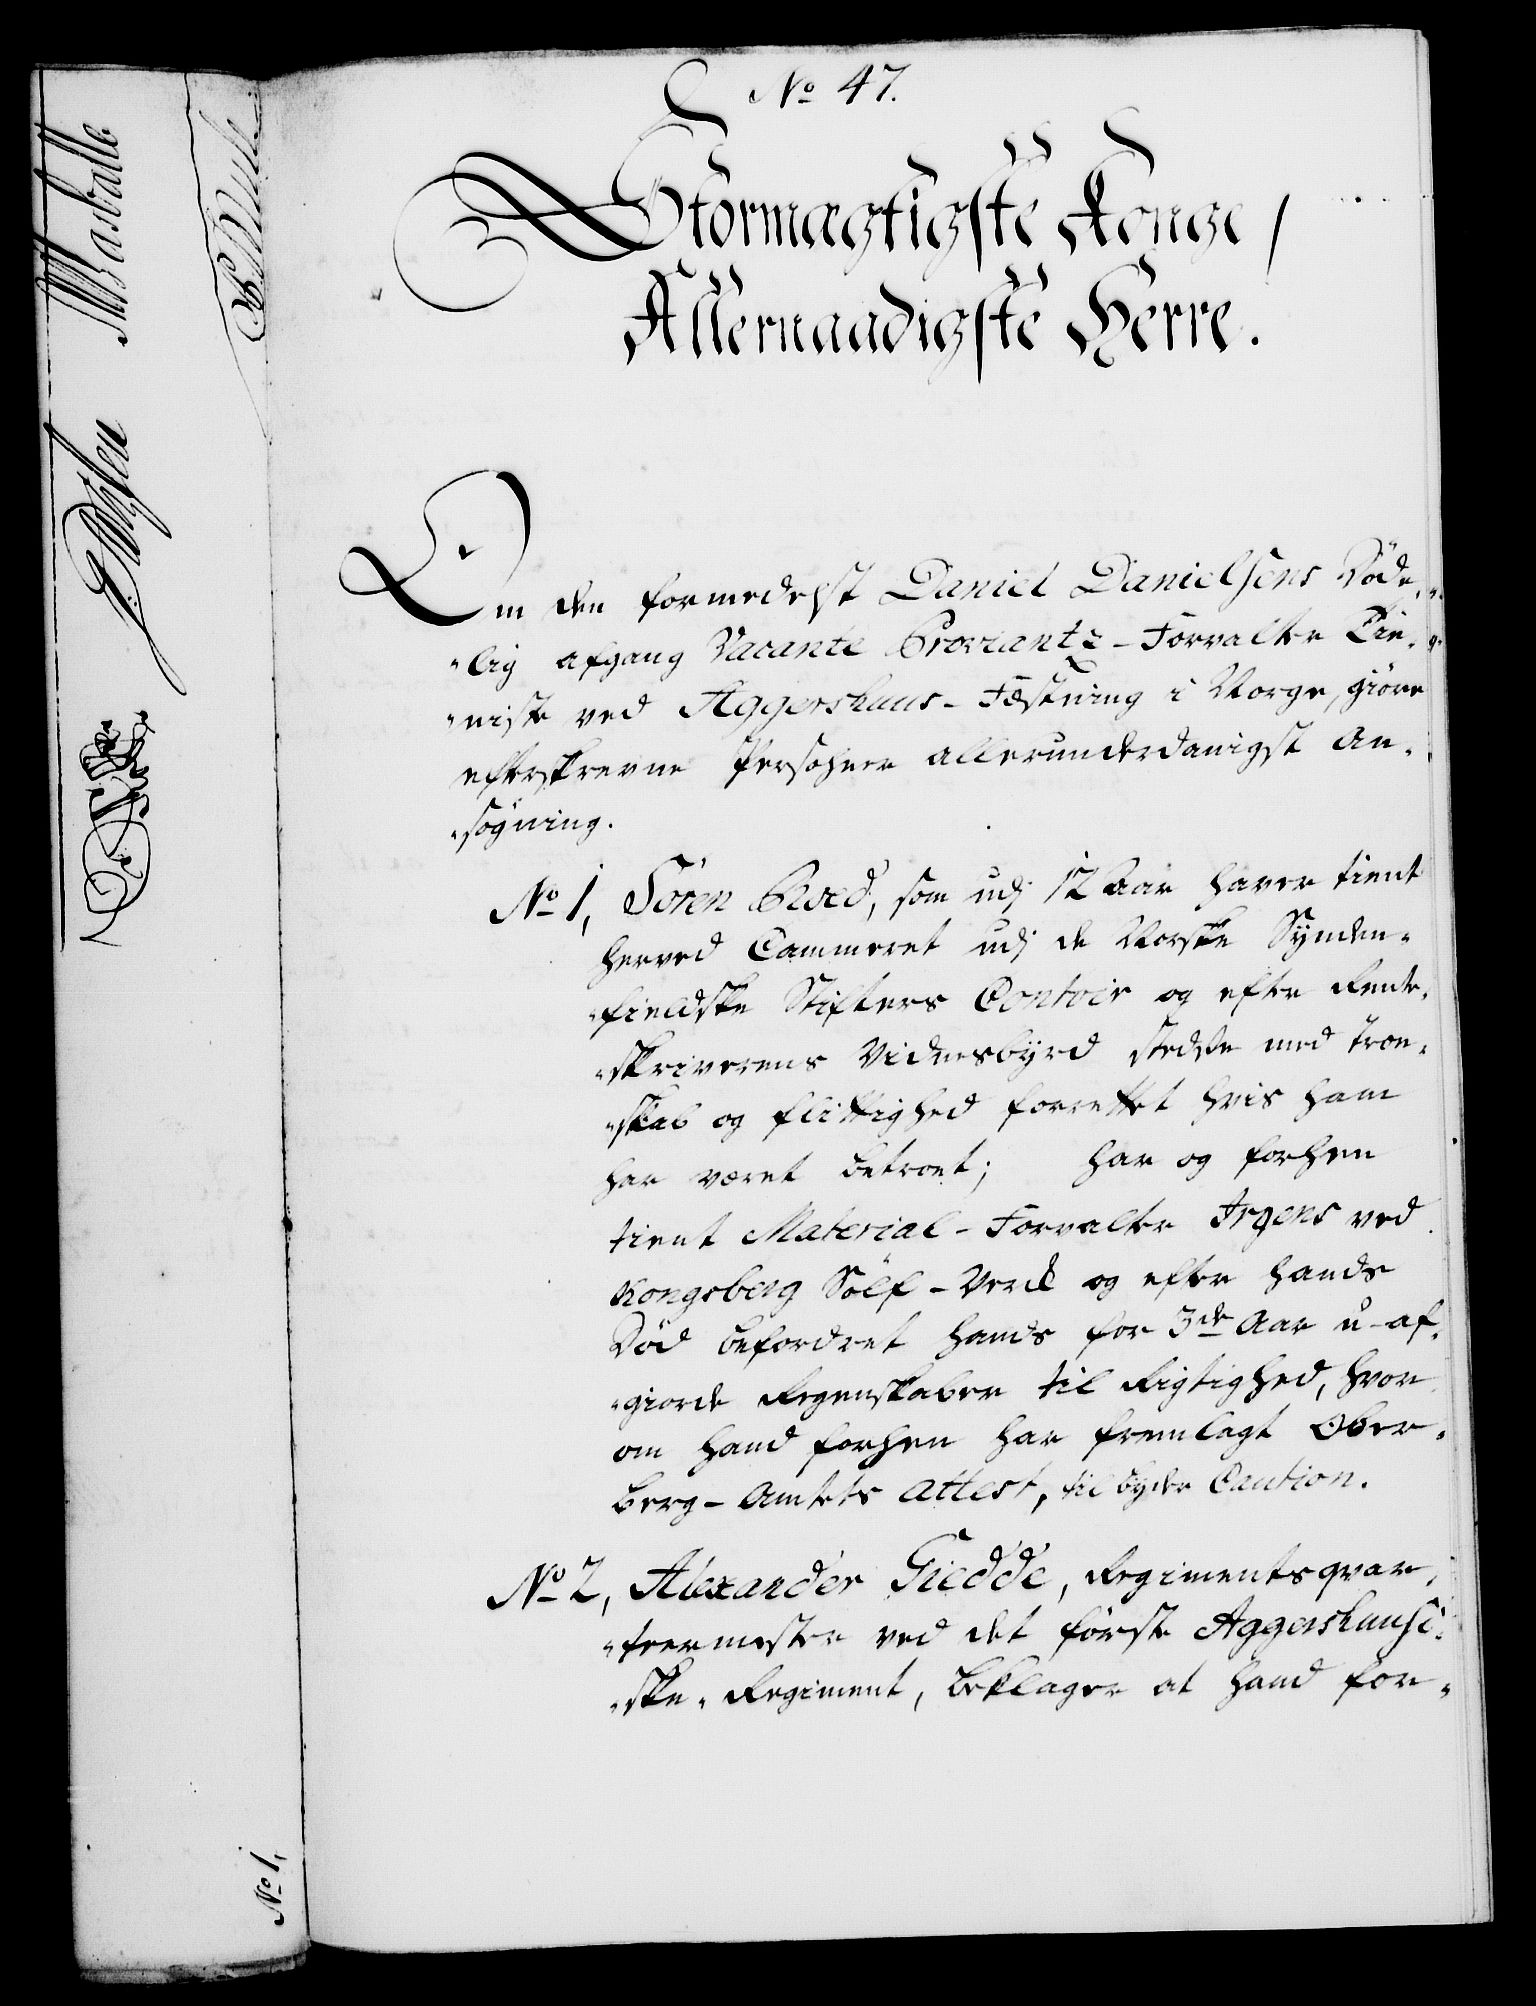 No 47.
Stormægtigste Konge /
Allernaadigste Herre.
Om den formedelst Daniel Danielsens Döde,,
,,lig afgang Vacante Proviantz-Forvalter Tie,,
,,niste ved Aggershuus-Fæstning i Norge, giöre
efterskrevne Persohner allerunderdanigst An,,
,,søgning.
No 1, Sören Qved, som udj 12 Aar haver tient
herved Cammeret udj de Norske Synden,,
,,fieldske Stifters Contoir og efter Rente,,
,,skriverens Vidnesbyrd stedse med troe,,
,,skab og flittighed forrettet hvis ham
har været betroet; har og forhen
tient Material-Forvalter Irgens ved
Kongsberg Sölf-Verk og efter hands
Död befordret hands for 3de Aar u-af,,
,,giorde Regenskaber til Rigtighed, hvor
om hand forhen har fremlagt Ober,,
berg-Amtets Attest, tilbyder Caution.
No 2, Alexander Giedde, Regimentsqvar,,
,,teermester ved det første Aggershuusi,,
,,ske Regiment, beklager at hand for,,
No 1,